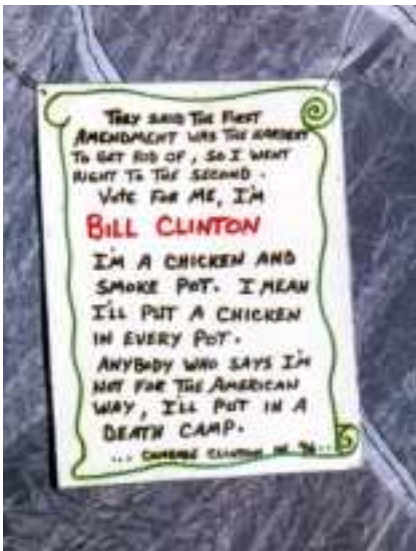 THEY SAID THE FIRST
AMENDMENT WAS THE HARDEST
TO GET RID OF, SO I WENT
RIGHT TO THE SECOND.
VOTE FOR ME, I'M
BILL CLINTON
I'M A CHICKEN AND
SMOKE POT. I MEAN
I'LL PUT A CHICKEN
IN EVERY POT.
ANYBODY WHO SAYS I'M
NOT FOR THE AMERICAN
WAY, I'LL PUT IN A
DEATH CAMP.
... CLINTON IN '96...